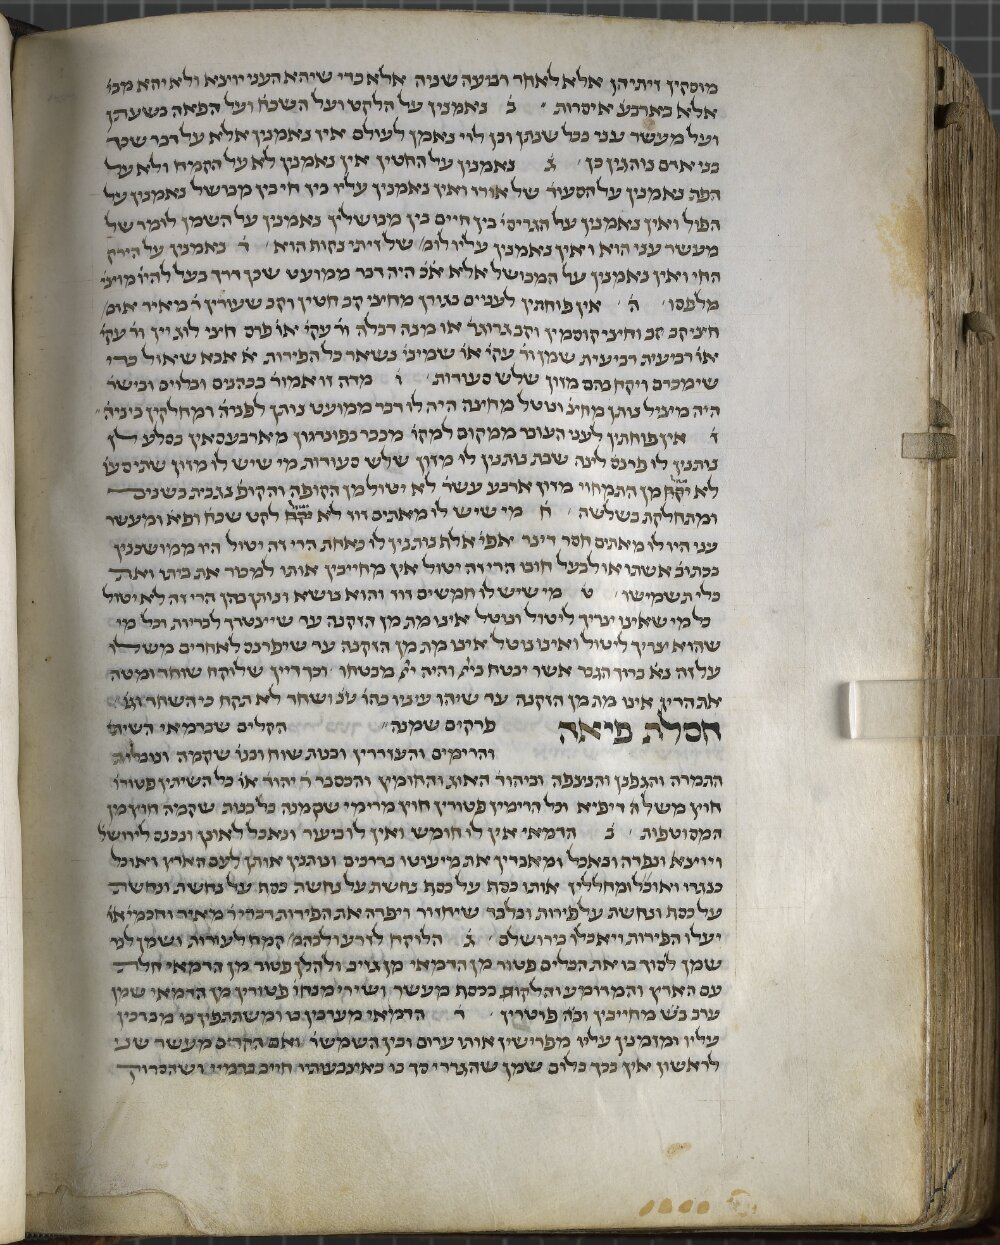 מוסקין זיתיהן אלא לאחר רביעה שניה אלא כדי שיהא העני יוצא ולא יהא מבי׳
אלא בארבע׳ איסרות ׳ ב̇ נאמנין על הלקט ועל השכח׳ ועל הפאה בשעתן
ועל מעשר עני בכל שנתו ובן לוי נאמן לעולם אין נאמנין אלא על דבר שכך
בני אדם נוהגין כן ׳ ג̇ נאמנין על החטין אין נאמנין לא על הקמח ולא על
הפת נאמנין על הסעור׳ של אורז ואין נאמנין עליו בין חי בין מבושל נאמנין על
הפול ואין נאמנין על הגריסי׳ בין חיים בין מבושלין נאמנין על השמן לומר של
מעשר עני הוא ואין נאמנין עליו לומ׳ של זיתי נקוף הוא ׳ ד̇ נאמנין על הירק
החי ואין נאמנין על המבושל אלא אכ׳ היה דבר ממועט שכן דרך בעל להיו׳ מוצי׳
מלפסו ׳ ה̇ ׳ אין פוחתין לעניים בגורן מחצי קב חטין וקב שעורין ר׳ מאיר אומ׳
חצי קב קב וחצי קוסמין וקב גרוגר׳ או מנה דבלה ור׳ עקי׳ או׳ פרס חצי לוג יין ור׳ עקי׳
או׳ רביעית רביעית שמן ור׳ עקי׳ או׳ שמיני׳ בשאר כל הפירות א׳ אבא שאול כדי
שימכרם ויקח בהם מזון שלש סעודות ׳ ו̇ מדה זו אמור׳ בכהנים ובלוים ובישר׳
היה מציל נותן מחצ׳ ונוטל מחצה היה לו דבר ממועט נותן לפניה׳ ומחלקין ביניה׳
ז̇ אין פוחתין לעני העובר ממקום למקו׳ מככר בפונדגון מארבע סאין בסלע לן
נותנין לו פרנס׳ לינה שבת נותנין לו מזון שלש סעודות מי שיש לו מזון שתי סעו׳
לא יקח מן התמחוי מזון ארבע עשר׳ לא יטול מן הקופה והקופ׳ נגבית בשנים
ומתחלקת בשלשה ׳ ח̇ מי שיש לו מאתים זוז לא יקח לקט שכח׳ ופא׳ ומעשר
עני היו לו מאתים חסר דינר אפי׳ אלף נותנין לו כאחת הרי זה יטול היו ממושכנין
בכתוב׳ אשתו או לבעל חובו הרי זה יטול אין מחייבין אותו למכור את ביתו ואת
כלי תשמישו ׳ ט̇ מי שיש לו חמשים זוז והוא נושא ונותן בהן הרי זה לא יטול
כל מי שאינו צריך ליטול ונוטל אינו מת מן הזקנה עד שיצטרך לבריות וכל מי
שהוא צריך ליטול ואינו נוטל אינו מת מן הזקנה עד שיפרנס לאחרים משלו
ועל זה נא׳ ברוך הגבר אשר יבטח ביי׳ והיה יי׳ מבטחו ׳ וכן דיין שלוקח שוחד ומטה
את הדין אינו מת מן הזקנה עד שיהו עיניו כהו׳ שנ׳ ושחד לא תקח כי השחד וגו׳
חסלת פיאה פרקים שמנה ׳ הקלים שבדמאי השיתי׳
והרימים והעוזרדין ובנות שוח ובנו׳ שקמה ונובלות
התמרה והגפנן והנצפה וביהוד׳ האוג והחומץ והכסבר ר׳ יהוד׳ או׳ כל השיתין פטורו׳
חוץ משלה דיפיא וכל הרימין פטורין חוץ מרימי שקמנה כל בנות שקמה חוץ מן
המסוטפות ׳ ב̇ הדמאי אין לו חומש ואין לו ביעור ונאכל לאונן ונכנס לירושל׳
ויוצא ונפדה ונאכל ומאבדין את מיעוטו בדרכים ונותנין אותו לעם הארץ ואוכל
כנגדו ואוכל ומחללין אותו כסף על כסף נחשת על נחשת כסף על נחשת ונחשת
על כסף ונחשת על פירות ובלבד שיחזור ויפדה את הפירות דברי ר׳ מאיר וחכמי׳ או׳
יעלו הפירות ויאכלו בירושלם ׳ ג̇ הלוקח לזרע ולבהמ׳ קמח לעורות ושמן לנר
שמן לסוך בו את הכלים פטור מן הדמאי מן גזיב ולהלן פטור מן הדמאי חלת
עם הארץ והמדומע והלקוח בכסף מעשר ושירי מנחו׳ פטורין מן הדמאי שמן
ערב בש׳ מחייבין ובה׳ פוטרין ׳ ד̇ הדמאי מערבין בו ומשתתפין בו מברכין
עליו ומזמנין עליו מפרישין אותו ערום ובין השמשו׳ ואם הקדים מעשר שני
לראשון אין בכך כלום שמן שהגרדי סך בו באצבעותיו חייב בדמאי ושהסרוק